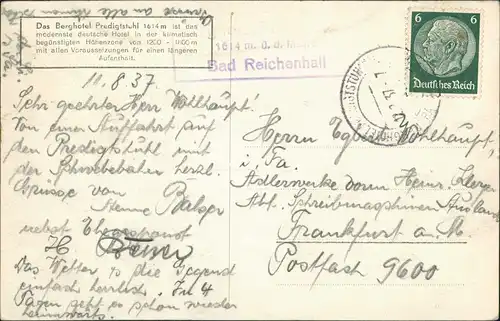 Das Berghotel Predigtstuhl 1614 m ist das
modernste deutsche Hotel in der klimatisch
begünstigten Höhenzone von 1200 - 1800 m
mit allen Voraussetzungen für einen längeren
Aufenthalt.
1614 m. ü. d.
Bad Reichenhall
6 6
Deutsches Reich
11.8.37.
Sehr geehrter Herr Wohlhaupt!
Von einer Auffahrt auf
den Predigtstuhl mit
der Schwebebahn herzl.
Grüsse von
Balser
nebst Ehegespons
Das Wetter, so die Gegend
einfach herrlich. In 4
Tagen geht es schon wieder
heimwärts.
Herrn Wohlhaupt,
i. Fa.
Adlerwerke vorm. Heinr. Kleyer
Abt. Schreibmaschinen Ausland
Frankfurt a. M.
Postfach 9600